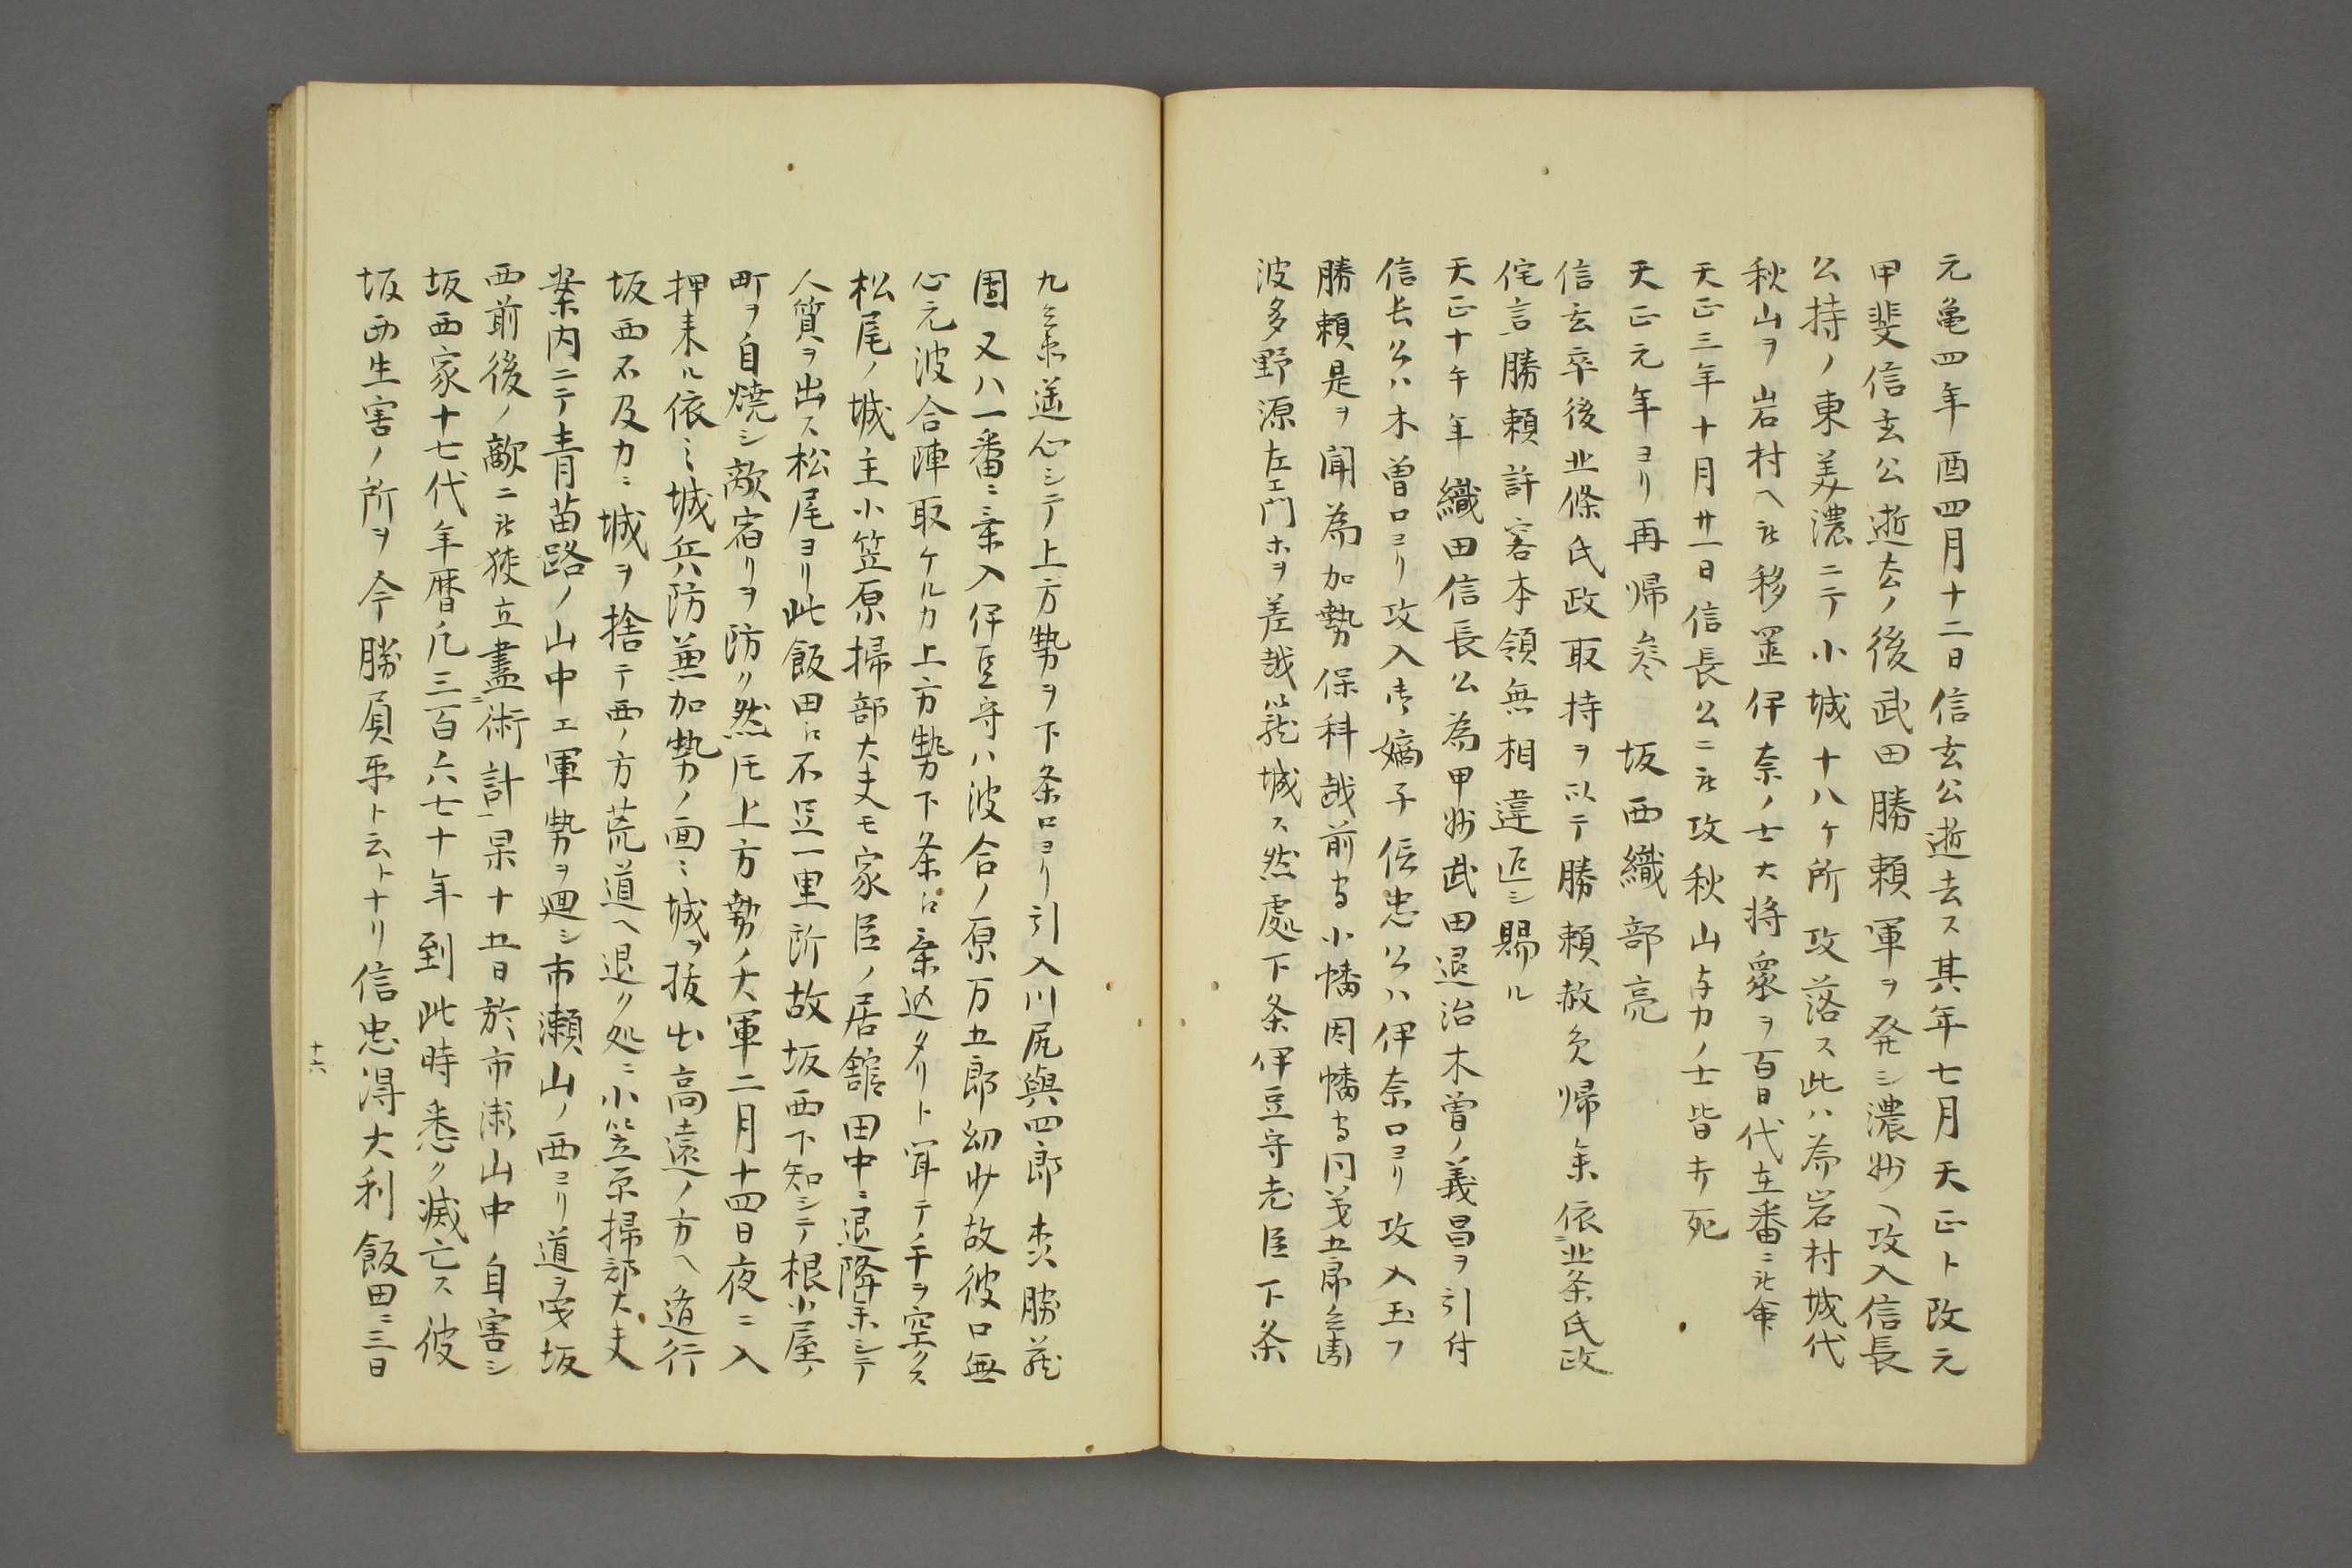 元亀四年酉四月十二日信玄公逝去ス其年七月天正ト改元
甲斐信玄公逝去ノ後武田勝頼軍ヲ発シ濃州ヘ攻入信長
公持ノ東美濃ニテ小城十八ケ所攻落ス此ハ為岩村城代
秋山ヲ岩村ヘ被移置伊奈ノ士大将衆ヲ百日代在番ニ被命
天正三年十月廿一日信長公ニ被攻秋山与力ノ士皆討死
天正元年ヨリ再帰参 坂西織部亮
信玄卒後北條氏政取持ヲ以テ勝頼赦免帰参依ニ北条氏政
侘言勝頼許容本領無相違返シ賜ル
天正十午年織田信長公為甲州武田退治木曽ノ義昌ヲ引付
信長公ハ木曽口ヨリ攻入御嫡子信忠公ハ伊奈口ヨリ攻入玉フ
勝頼是ヲ聞為加勢保科越前守小幡因幡守同五郎兵衛
波多野源左エ門ホヲ差越籠城ス然處下条伊豆守老臣下条
九兵衛逆心シテ上方勢ヲ下条口ヨリ引入川尻與四郎森勝蔵
団又ハ一番ニ乗入伊豆守ハ波合ノ原万五郎幼少故彼口無
心元波合陣取ケルカ上方勢下条口乗込タリト聞テ手ヲ空クス
松尾ノ城主小笠原掃部大夫モ家臣ノ居舘田中ニ退降参シテ
人質ヲ出ス松尾ヨリ此飯田口不足一里所故坂西下知シテ根小屋ノ
町ヲ自焼シ敵宿リヲ防ク然圧上方勢ノ大軍二月十四日夜ニ入
押来ル依之城兵防兼加勢ノ面々城ヲ抜出高遠ノ方ヘ道行
坂西不及力ニ城ヲ捨テ西ノ方荒道ヘ退ク処ニ小笠原掃部大夫
案内ニテ青苗路ノ山中エ軍勢ヲ廻シ市瀬山ノ西ヨリ道ヲ塞坂
西前後ノ敵ニ被狭立盡ニ術計一果十五日於市瀬山中自害シ
坂西家十七代年暦凡三百六七十年到此時悉ク滅亡ス彼
坂西生害ノ所ヲ今勝負平ト云トナリ信忠得大利飯田ニ三日
十六